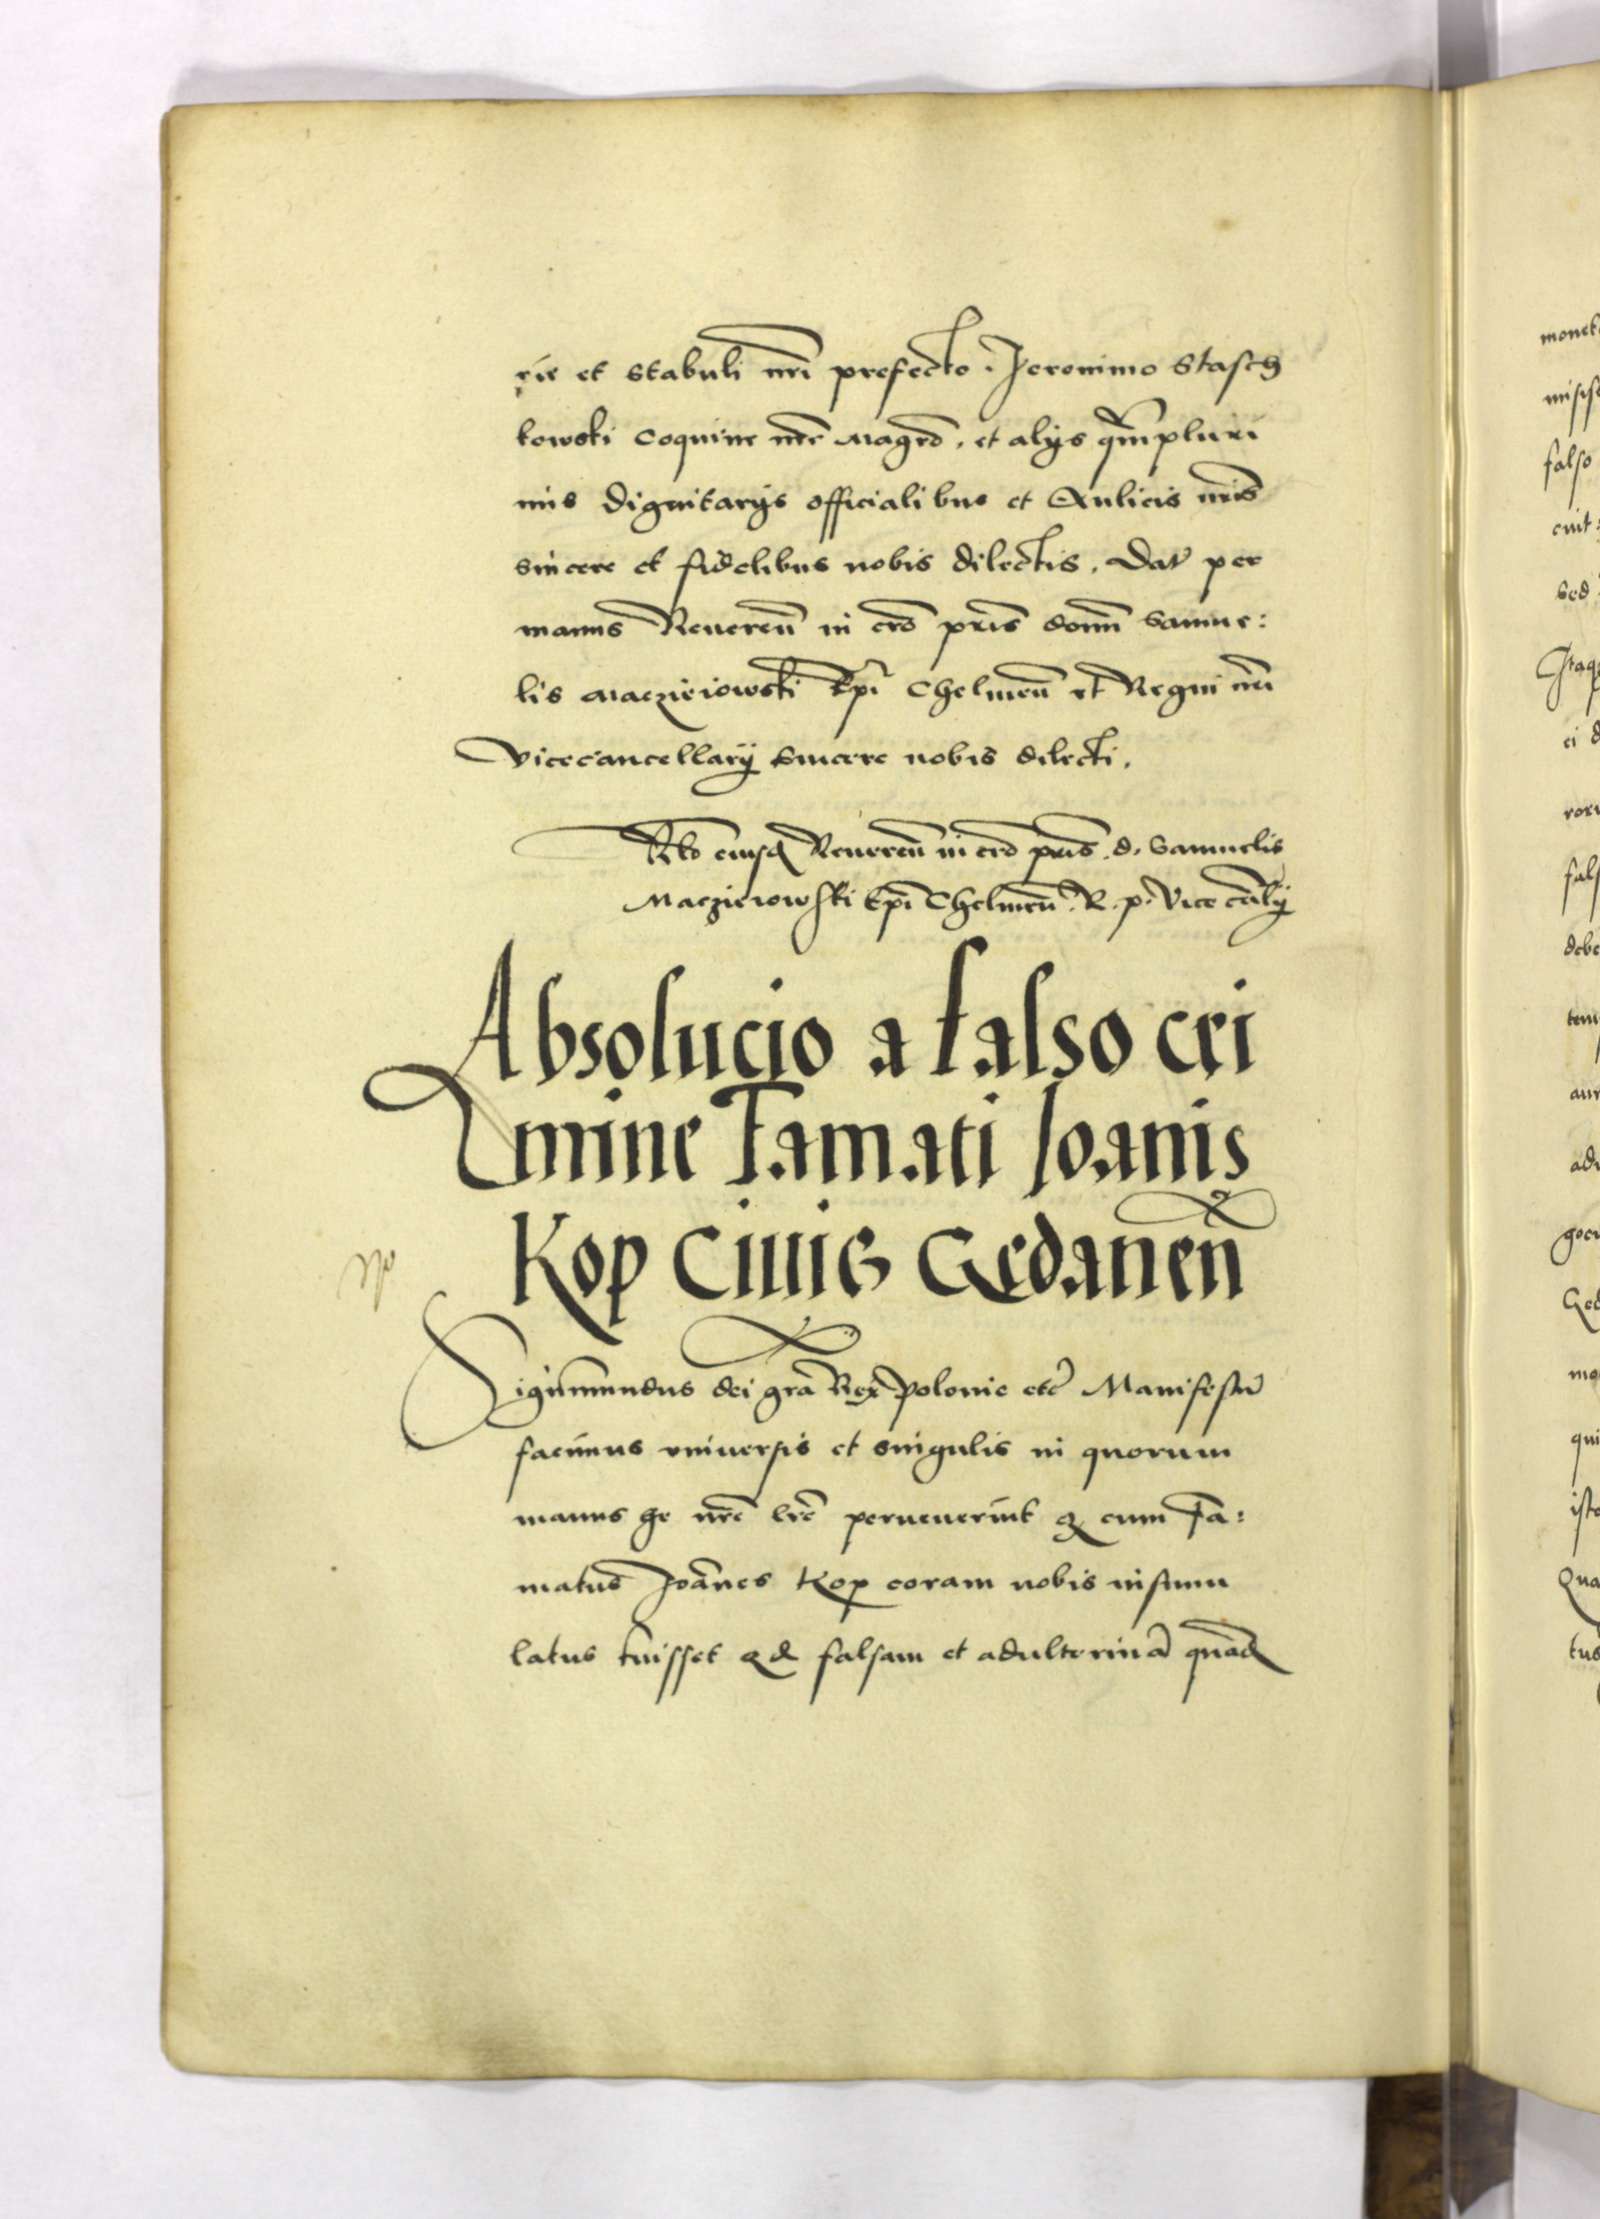 rie et stabuli nri prefecto. Jeronimo Stasch
kowski coquine nre Magro. et alijs qmpluri
mis dignitarijs officialibus et Aulicis nris
sincere et fidelibus nobis dilectis. Dat per
manus Reueren in cro pris domi Samue:
lis Maczieiowski Epi Chelmen et Regni nri
vicecancellarij sincere nobis dilecti.
Rlo eiusd Reueren in cro pris. d. Samuelis
Maczieiowski Epi Chelmen. R. p. Vice canlij
Absolucio a falso cri
mine Famati Joanis
Kop Ciuis Gedanen
No
Sigismundus dei gra Rex Polonie etc Manifestu
facimus vniuersis et singulis in quorum
manus he nre lre peruenerint q cum Fa:
matus Joannes Kop coram nobis insimu
latus fuisset qd falsam et adulterina quad
monet
misis
falso
cuit
sed
Itaq
ei d
roru
fals
debe
tem
aur
adu
goci
Ged
mo
qui
isto
Qua
tus